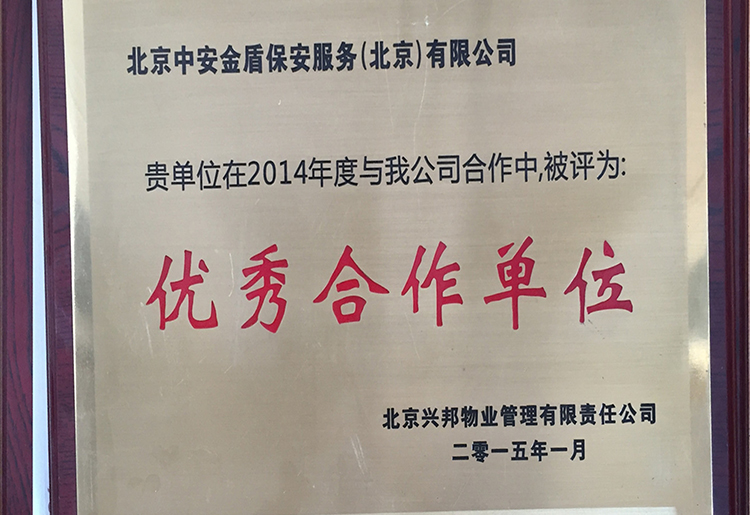 北京中安金盾保安服务(北京)有限公司
贵单位在2014年度与我公司合作中,被评为:
优秀合作单位
北京兴邦物业管理有限责任公司
二零一五年一月